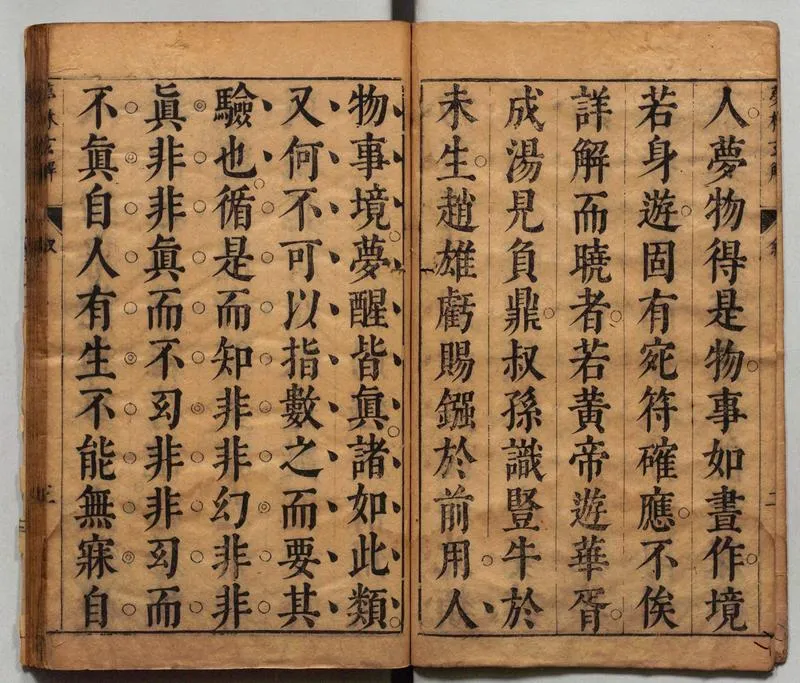 夢林玄解 敘 二
人夢物得是物事如晝作境
若身遊固有宛符確應不俟
詳解而曉者若黃帝遊華胥
成湯見負鼎叔孫識豎牛於
未生趙雄虧賜鏹於前用人
物事境夢醒皆眞諸如此類
又何不可以指數之而要其
驗也循是而知非非幻非非
眞非非眞而不幻非非幻而
不眞自人有生不能無寐自
夢林玄解 敘 三